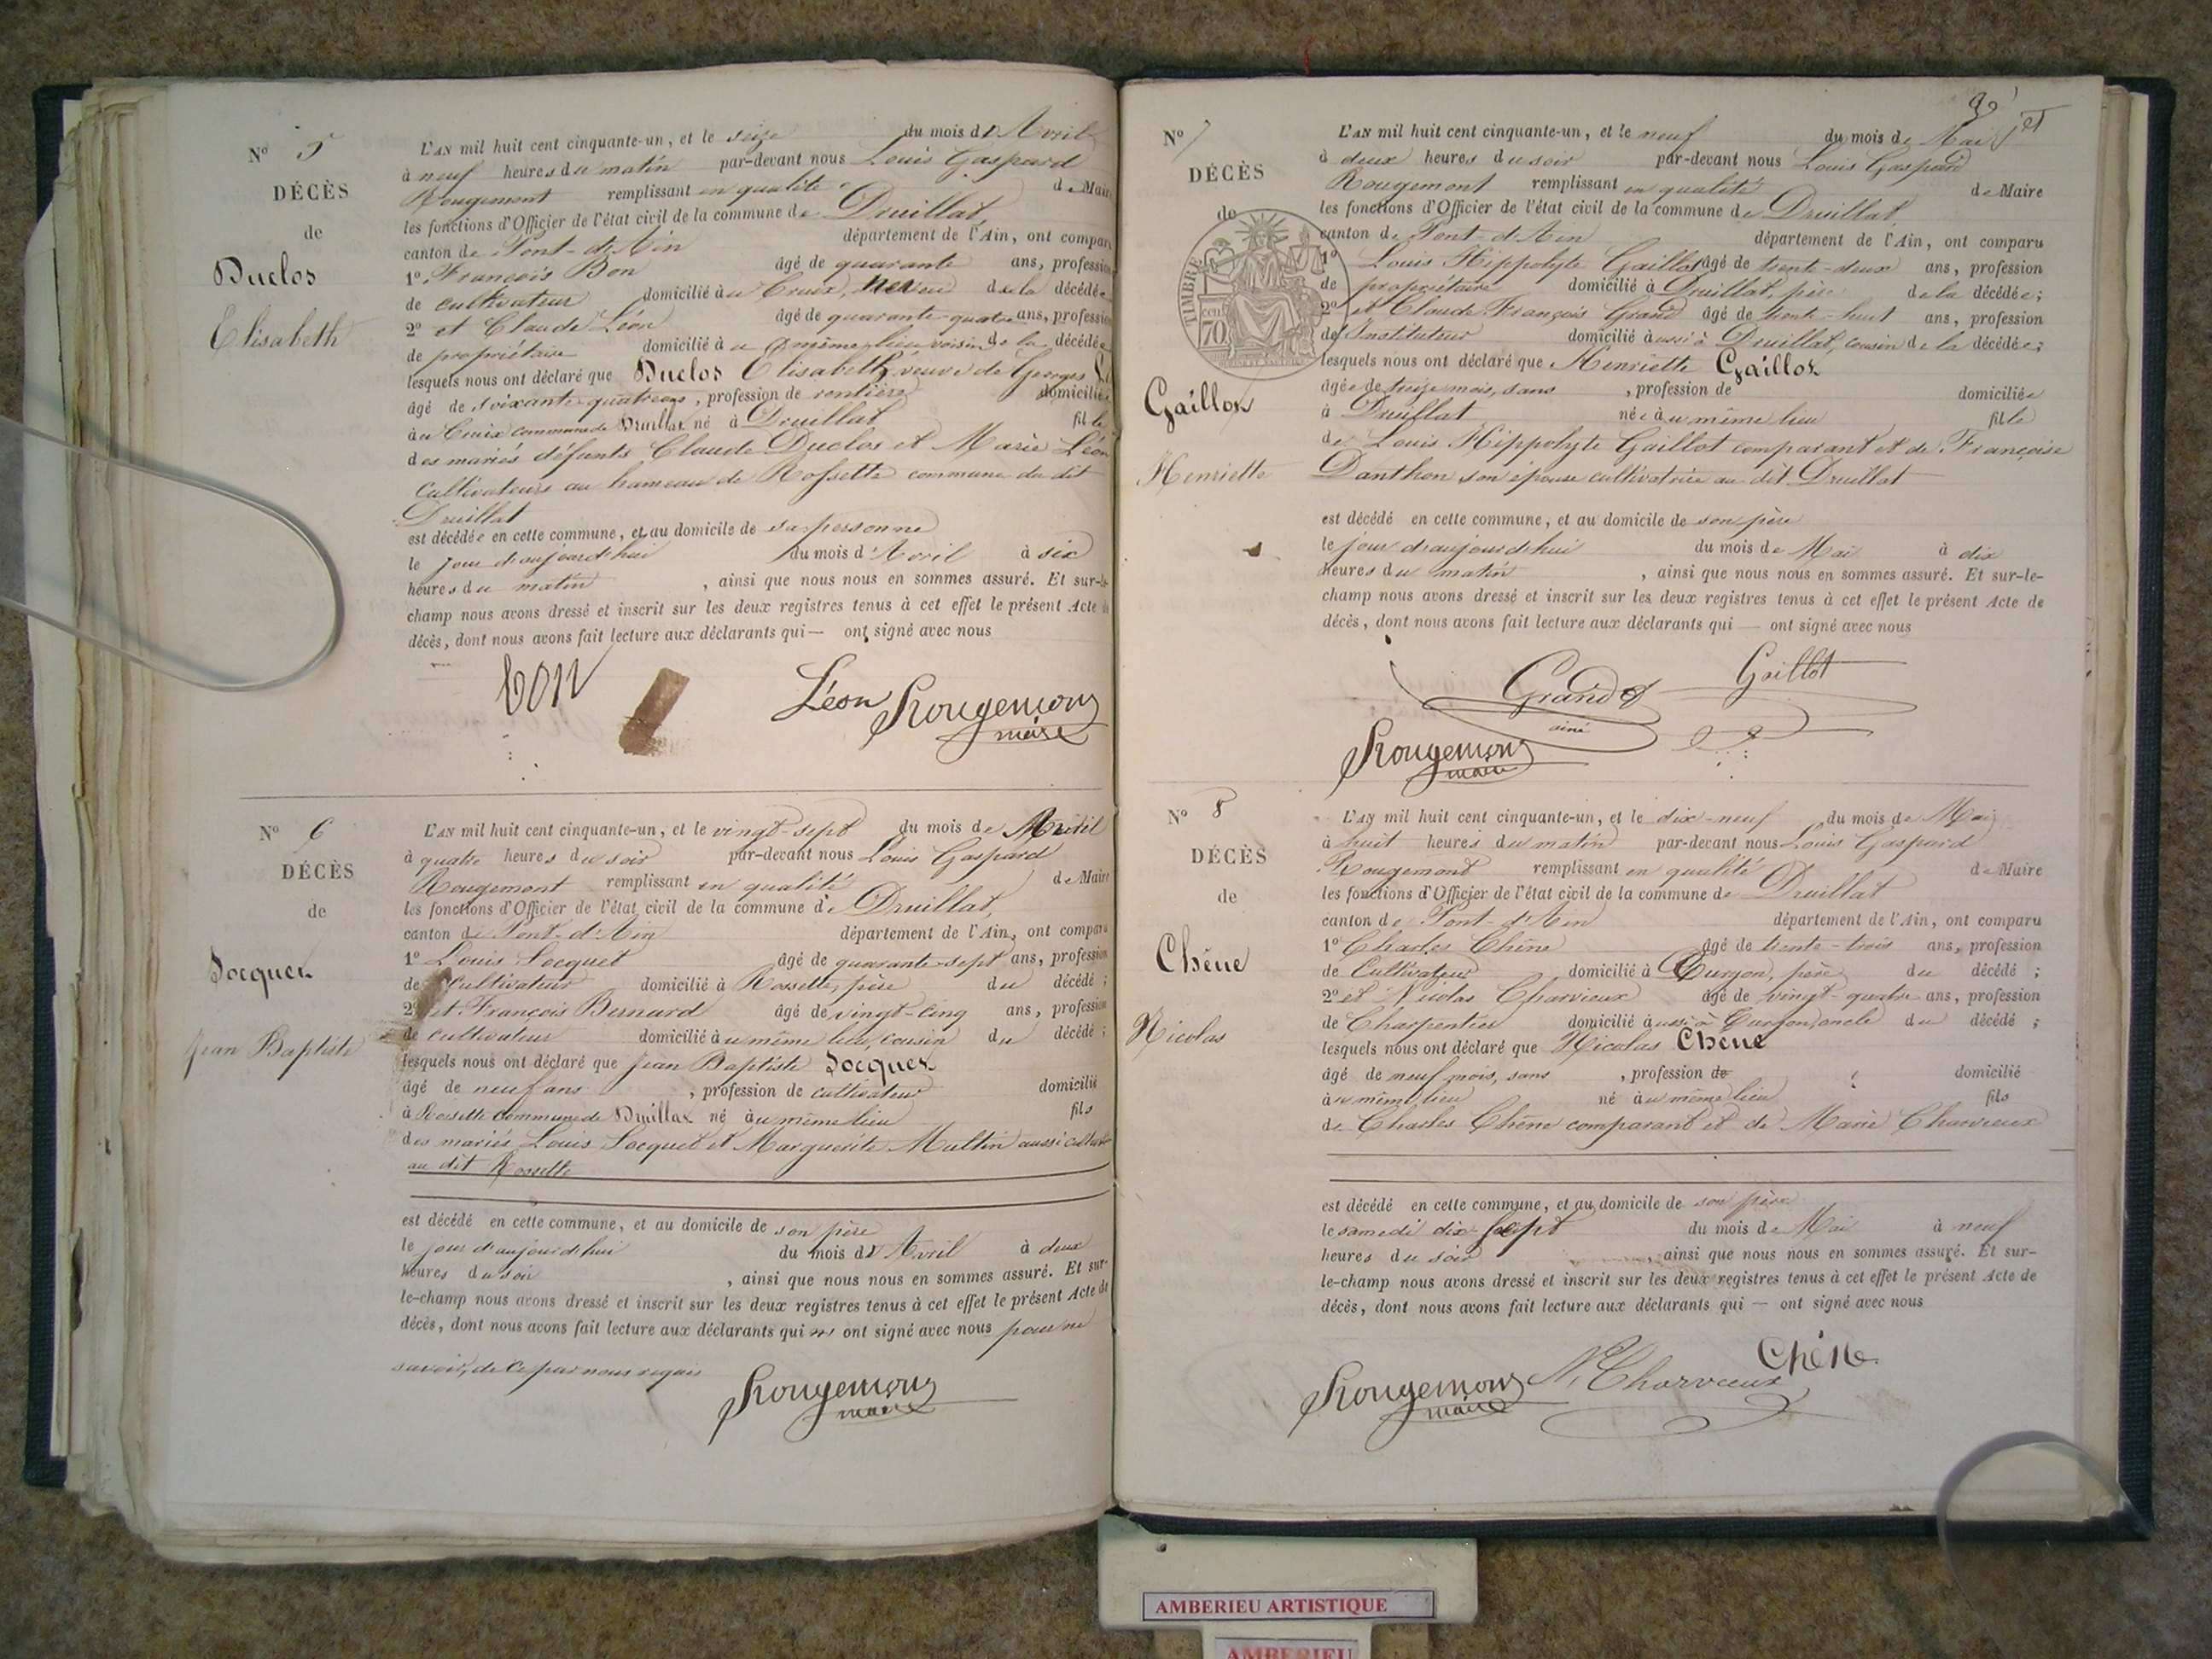 N° 5
DÉCÈS
de
Duclos
Elisabeth
L'AN mil huit cent cinquante-un, et le seize du mois d'Avril
à neuf heures du matin par-devant nous Louis Gaspard
Rougemont remplissant en qualité de Maire
les fonctions d'Officier de l'état civil de la commune de Druillat,
canton de Pont-d'Ain département de l'Ain, ont comparu
1° François Bon âgé de quarante ans, profession
de cultivateur domicilié au Cruix, neveu de la décédée
2° et Claude Léon âgé de quarante-quatre ans, profession
de propriétaire domicilié au même lieu voisin de la décédée
lesquels nous ont déclaré que Duclos Elisabeth, veuve de Georges
âgé de soixante-quatre ans, profession de rentière domiciliée
au Cruix commune de Druillat né à Druillat fille
des mariés défunts Claude Duclos et Marie Léon
cultivateurs au hameau de Rossette commune du dit
Druillat
est décédée en cette commune, et au domicile de sa personne
le jour d'aujourd'hui du mois d'Avril à six
heures du matin, ainsi que nous nous en sommes assuré. Et sur-le-
champ nous avons dressé et inscrit sur les deux registres tenus à cet effet le présent Acte de
décès, dont nous avons fait lecture aux déclarants qui — ont signé avec nous
bon Léon Rougemont
maire
N° 6
DÉCÈS
de
Socquet
Jean Baptiste
L'AN mil huit cent cinquante-un, et le vingt-sept du mois de Avril
à quatre heures du soir par-devant nous Louis Gaspard
Rougemont remplissant en qualité de Maire
les fonctions d'Officier de l'état civil de la commune de Druillat,
canton de Pont-d'Ain département de l'Ain, ont comparu
1° Louis Socquet âgé de quarante-sept ans, profession
de cultivateur domicilié à Rossette, père du décédé ;
2° et François Bernard âgé de vingt-cinq ans, profession
de cultivateur domicilié au même lieu, cousin du décédé ;
lesquels nous ont déclaré que Jean Baptiste Socquet
âgé de neuf ans, profession de cultivateur domicilié
à Rossette commune de Druillat né au même lieu fils
des mariés Louis Socquet et Marguerite Multin aussi cultivat
au dit Rossette
est décédé en cette commune, et au domicile de son père
le jour d'aujourd'hui du mois d'Avril à deux
heures du soir, ainsi que nous nous en sommes assuré. Et sur-
le-champ nous avons dressé et inscrit sur les deux registres tenus à cet effet le présent Acte de
décès, dont nous avons fait lecture aux déclarants qui n' ont signé avec nous pour ne
savoir, de ce par nous requis
Rougemont
maire
N° 7
DÉCÈS
de
TIMBRE
70 cen
Gaillot
Henriette
L'AN mil huit cent cinquante-un, et le neuf du mois de Mai
à deux heures du soir par-devant nous Louis Gaspard
Rougemont remplissant en qualité de Maire
les fonctions d'Officier de l'état civil de la commune de Druillat
canton de Pont-d'Ain département de l'Ain, ont comparu
1° Louis Hippolyte Gaillot âgé de trente-deux ans, profession
de propriétaire domicilié à Druillat, père de la décédée ;
2° et Claude François Grand âgé de trente-huit ans, profession
de Instituteur domicilié aussi à Druillat, cousin de la décédée ;
lesquels nous ont déclaré que Henriette Gaillot
âgée de treize mois, sans, profession de domiciliée
à Druillat née au même lieu fille
de Louis Hippolyte Gaillot comparant et de Françoise
Danthon son épouse cultivatrice au dit Druillat
est décédé en cette commune, et au domicile de son père
le jour d'aujourd'hui du mois de Mai à dix
heures du matin, ainsi que nous nous en sommes assuré. Et sur-le-
champ nous avons dressé et inscrit sur les deux registres tenus à cet effet le présent Acte de
décès, dont nous avons fait lecture aux déclarants qui — ont signé avec nous
Grand Gaillot
ainé
Rougemont
maire
N° 8
DÉCÈS
de
Chêne
Nicolas
L'AN mil huit cent cinquante-un, et le dix-neuf du mois de Mai
à huit heures du matin par-devant nous Louis Gaspard
Rougemont remplissant en qualité de Maire
les fonctions d'Officier de l'état civil de la commune de Druillat
canton de Pont-d'Ain département de l'Ain, ont comparu
1° Charles Chêne âgé de trente-trois ans, profession
de Cultivateur domicilié à Turgon, père du décédé ;
2° et Nicolas Charvieux âgé de vingt-quatre ans, profession
de Charpentier domicilié aussi à Turgon, oncle du décédé ;
lesquels nous ont déclaré que Nicolas Chêne
âgé de neuf mois, sans, profession de domicilié
au même lieu né au même lieu fils
de Charles Chêne comparant et de Marie Charvieux
est décédé en cette commune, et au domicile de son père
le samedi dix-sept du mois de Mai à neuf
heures du soir, ainsi que nous nous en sommes assuré. Et sur-
le-champ nous avons dressé et inscrit sur les deux registres tenus à cet effet le présent Acte de
décès, dont nous avons fait lecture aux déclarants qui — ont signé avec nous
Chêne
Rougemont N. Charvieux
maire
AMBERIEU ARTISTIQUE
AMBERIEU